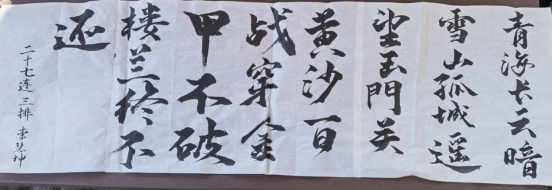 青海长云暗
雪山孤城遥
望玉門关
黄沙百
战穿金
甲不破
楼兰终不
还
二十七连 三排